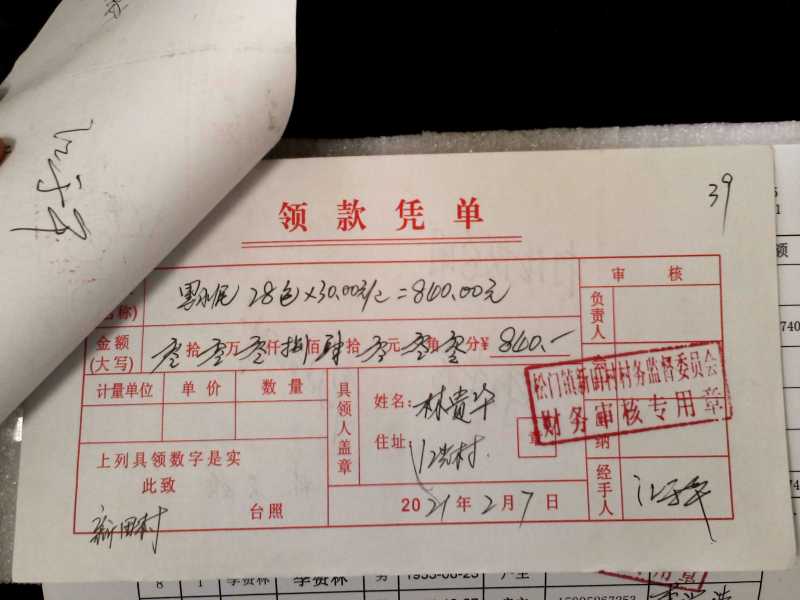 39
领款凭单
黑水泥 28包×30.00元/包=840.00元
名称)
审核
负责人
金额(大写) 零拾零万零仟捌佰肆拾零元零角零分¥ 840.-
计量单位 单价 数量
具领人盖章
姓名: 林贵华
住址:
章
松门镇新田村村务监督委员会
财务审核专用章
纳
上列具领数字是实
此致
新田村 台照
2021年2月7日
经手人
8 1 李贵林 李贵林 男